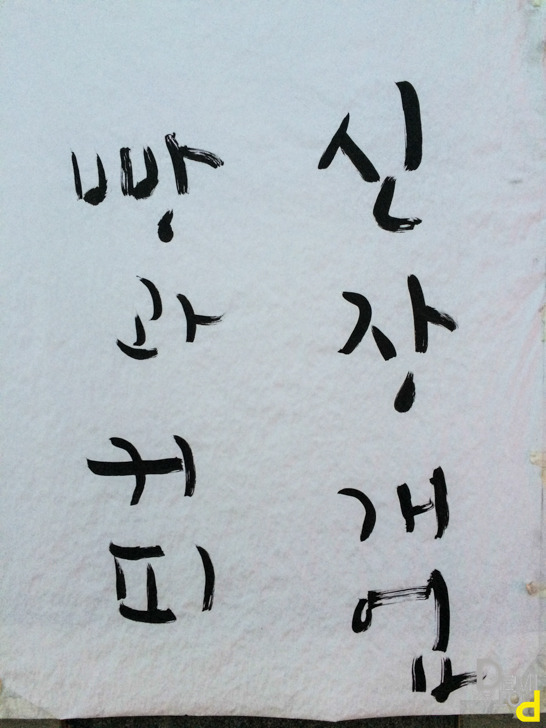 신장개업
빵과커피